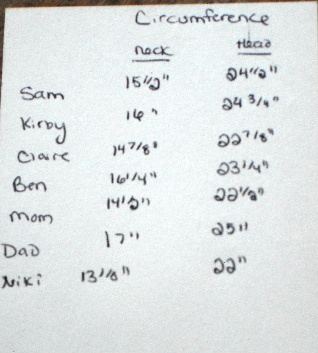 Circumference
neck Head
Sam 15 1/2" 24 1/2"
Kirby 16" 24 3/4"
Claire 14 7/8" 22 7/8"
Ben 16 1/4" 23 1/4"
mom 14 1/2" 22 1/2"
Dad 17" 25"
Niki 13 1/8" 22"